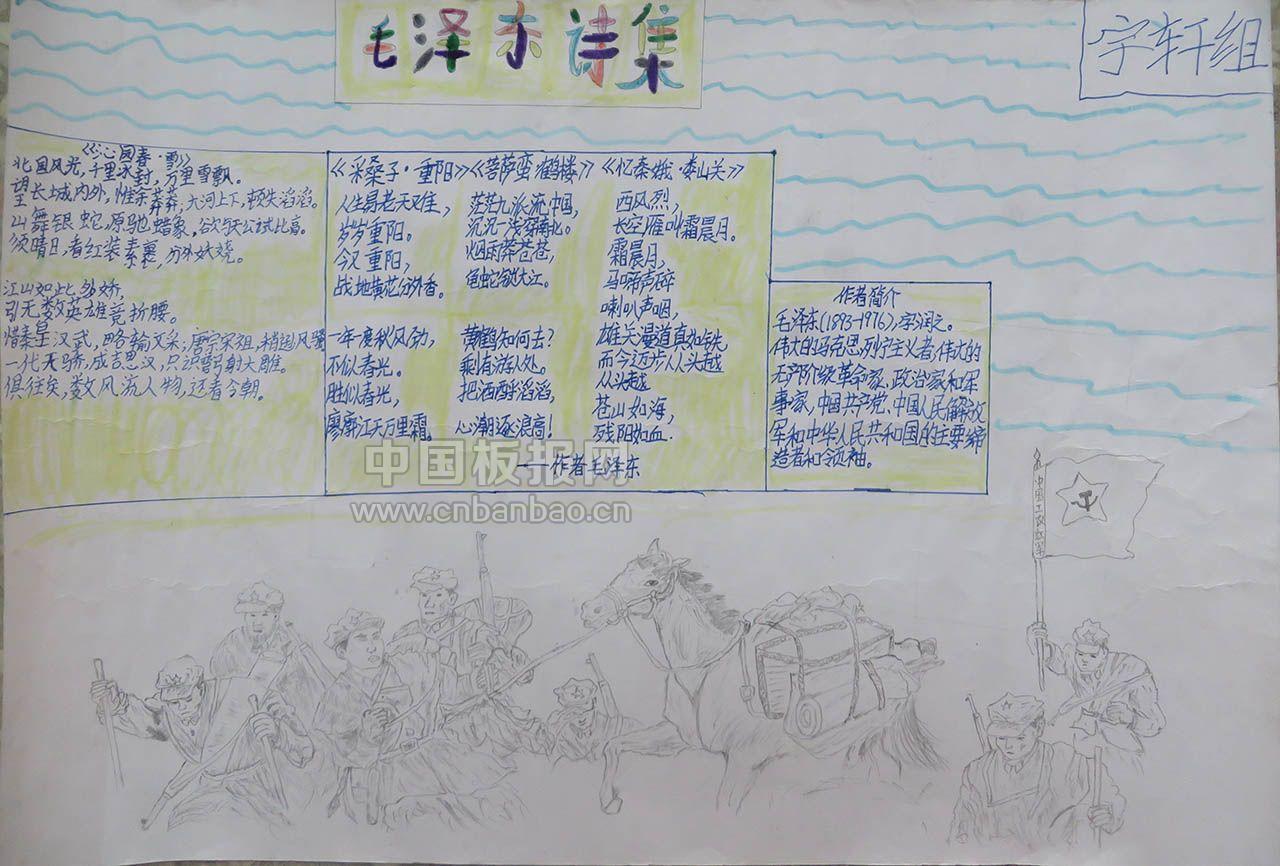 毛泽东诗集
宇轩组
《沁园春·雪》
北国风光,千里冰封,万里雪飘。
望长城内外,惟余莽莽,大河上下,顿失滔滔。
山舞银蛇,原驰蜡象,欲与天公试比高。
须晴日,看红装素裹,分外妖娆。
江山如此多娇,
引无数英雄竞折腰。
惜秦皇汉武,略输文采,唐宗宋祖,稍逊风骚
一代天骄,成吉思汉,只识弯弓射大雕。
俱往矣,数风流人物,还看今朝。
《采桑子·重阳》
人生易老天难,
岁岁重阳。
今又重阳,
战地黄花分外香。
一年一度秋风劲,
不似春光。
胜似春光,
廖廓江天万里霜。
《菩萨蛮·鹤楼》
茫茫九派流中国,
沉沉一线穿南北。
烟雨莽苍苍,
龟蛇锁大江。
黄鹤知何去?
剩有游人处。
把酒酹滔滔,
心潮逐浪高!
《忆秦娥·娄山关》
西风烈,
长空雁叫霜晨月。
霜晨月,
马啼声碎
喇叭声咽,
雄关漫道真如铁,
而今迈步从头越
从头越
苍山如海,
残阳如血.
——作者毛泽东
作者简介
毛泽东(1893-1976),字润之。
伟大的马克思,列宁主义者,伟大的
无产阶级革命家、政治家和军
事家,中国共产党、中国人民解放
军和中华人民共和国的主要缔
造者和领袖。
中国工农红军
中国板报网
www.cnbanbao.cn